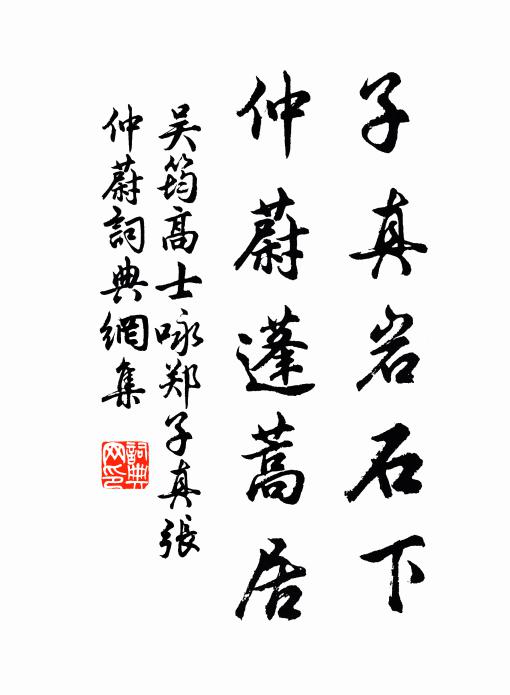 子真岩石下
仲蔚蓬蒿居
吴筠高士咏郑子真張
仲蔚詞典網集
詞典
网印